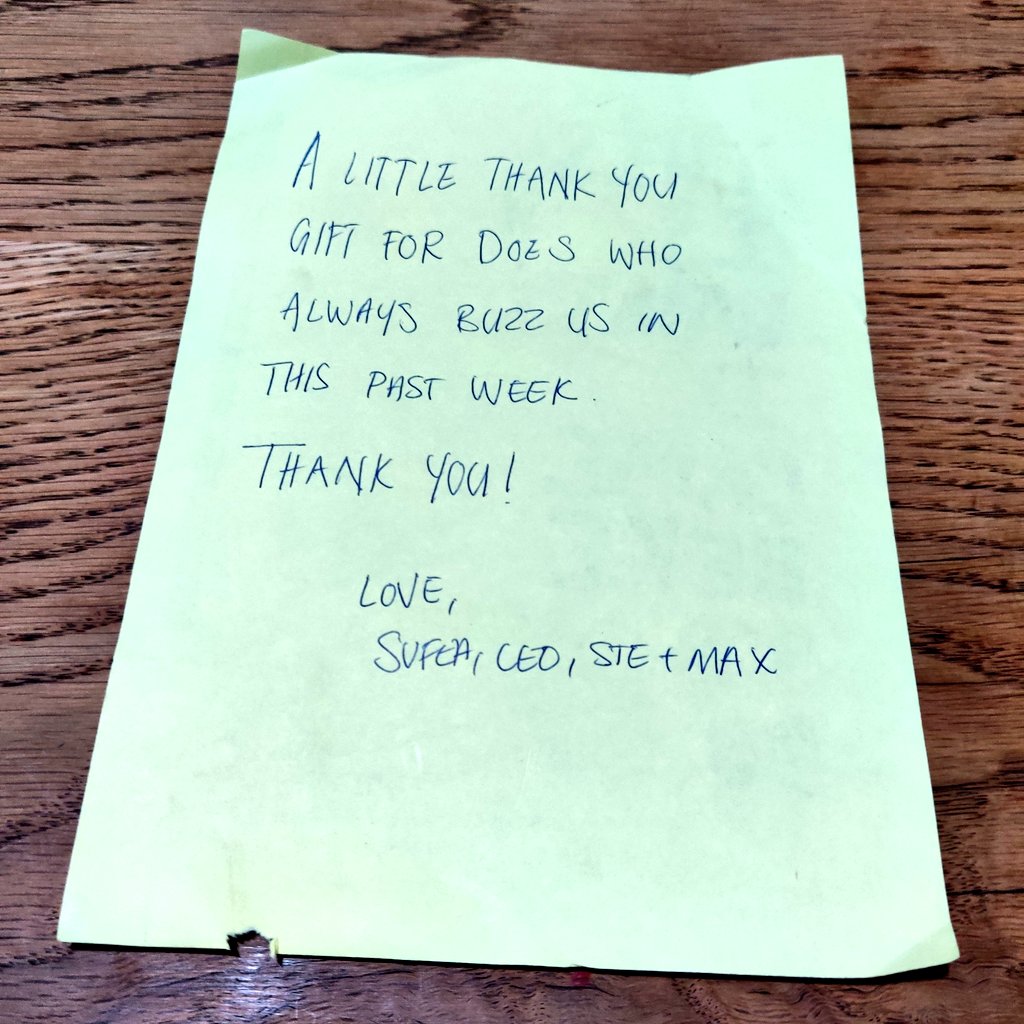 A LITTLE THANK YOU
GIFT FOR DOES WHO
ALWAYS BUZZ US IN
THIS PAST WEEK.
THANK YOU!
LOVE,
CEO, STE + MAX